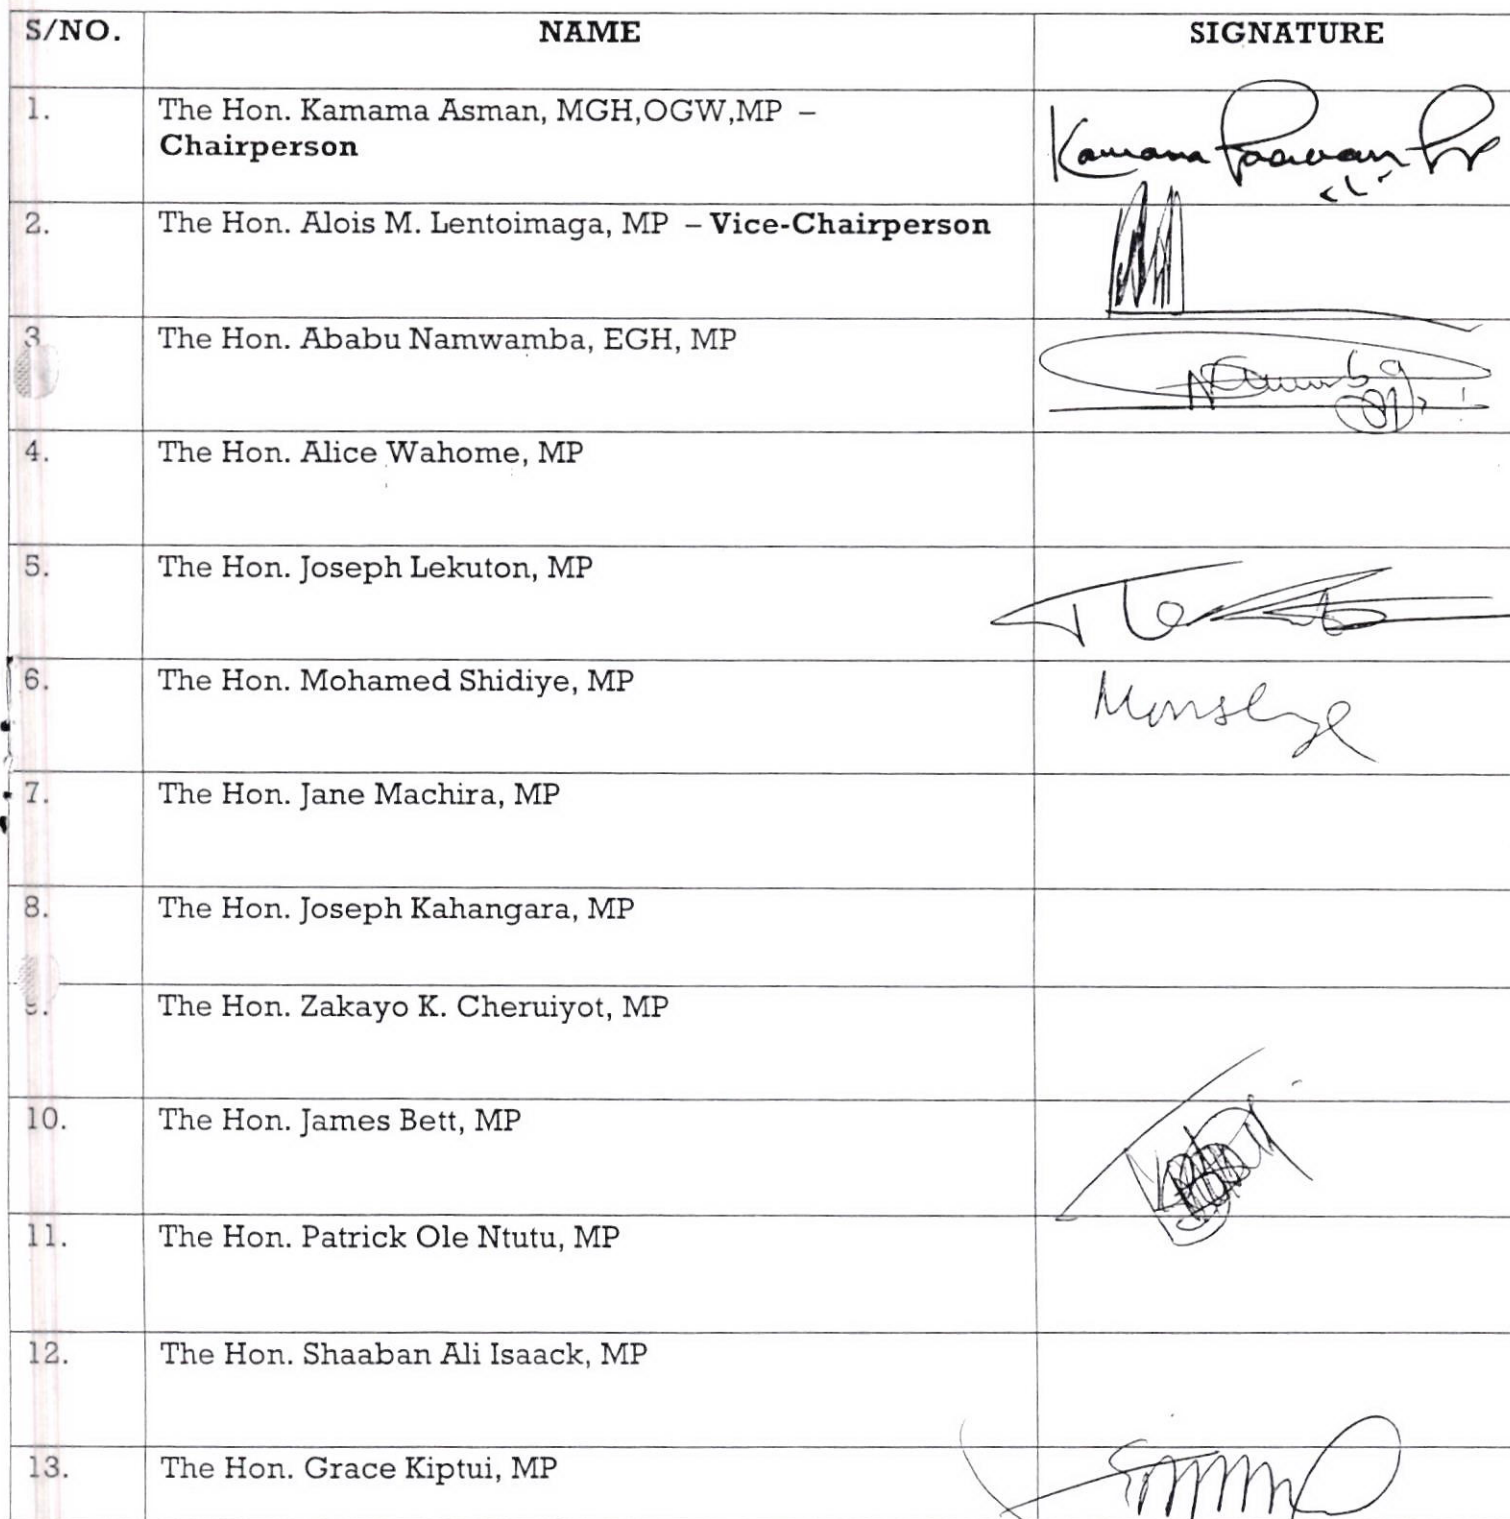 S/NO. NAME SIGNATURE
1. The Hon. Kamama Asman, MGH,OGW,MP –
Chairperson
Kamama
2. The Hon. Alois M. Lentoimaga, MP – Vice-Chairperson
3 The Hon. Ababu Namwamba, EGH, MP
4. The Hon. Alice Wahome, MP
5. The Hon. Joseph Lekuton, MP
6. The Hon. Mohamed Shidiye, MP
7. The Hon. Jane Machira, MP
8. The Hon. Joseph Kahangara, MP
9. The Hon. Zakayo K. Cheruiyot, MP
10. The Hon. James Bett, MP
11. The Hon. Patrick Ole Ntutu, MP
12. The Hon. Shaaban Ali Isaack, MP
13. The Hon. Grace Kiptui, MP